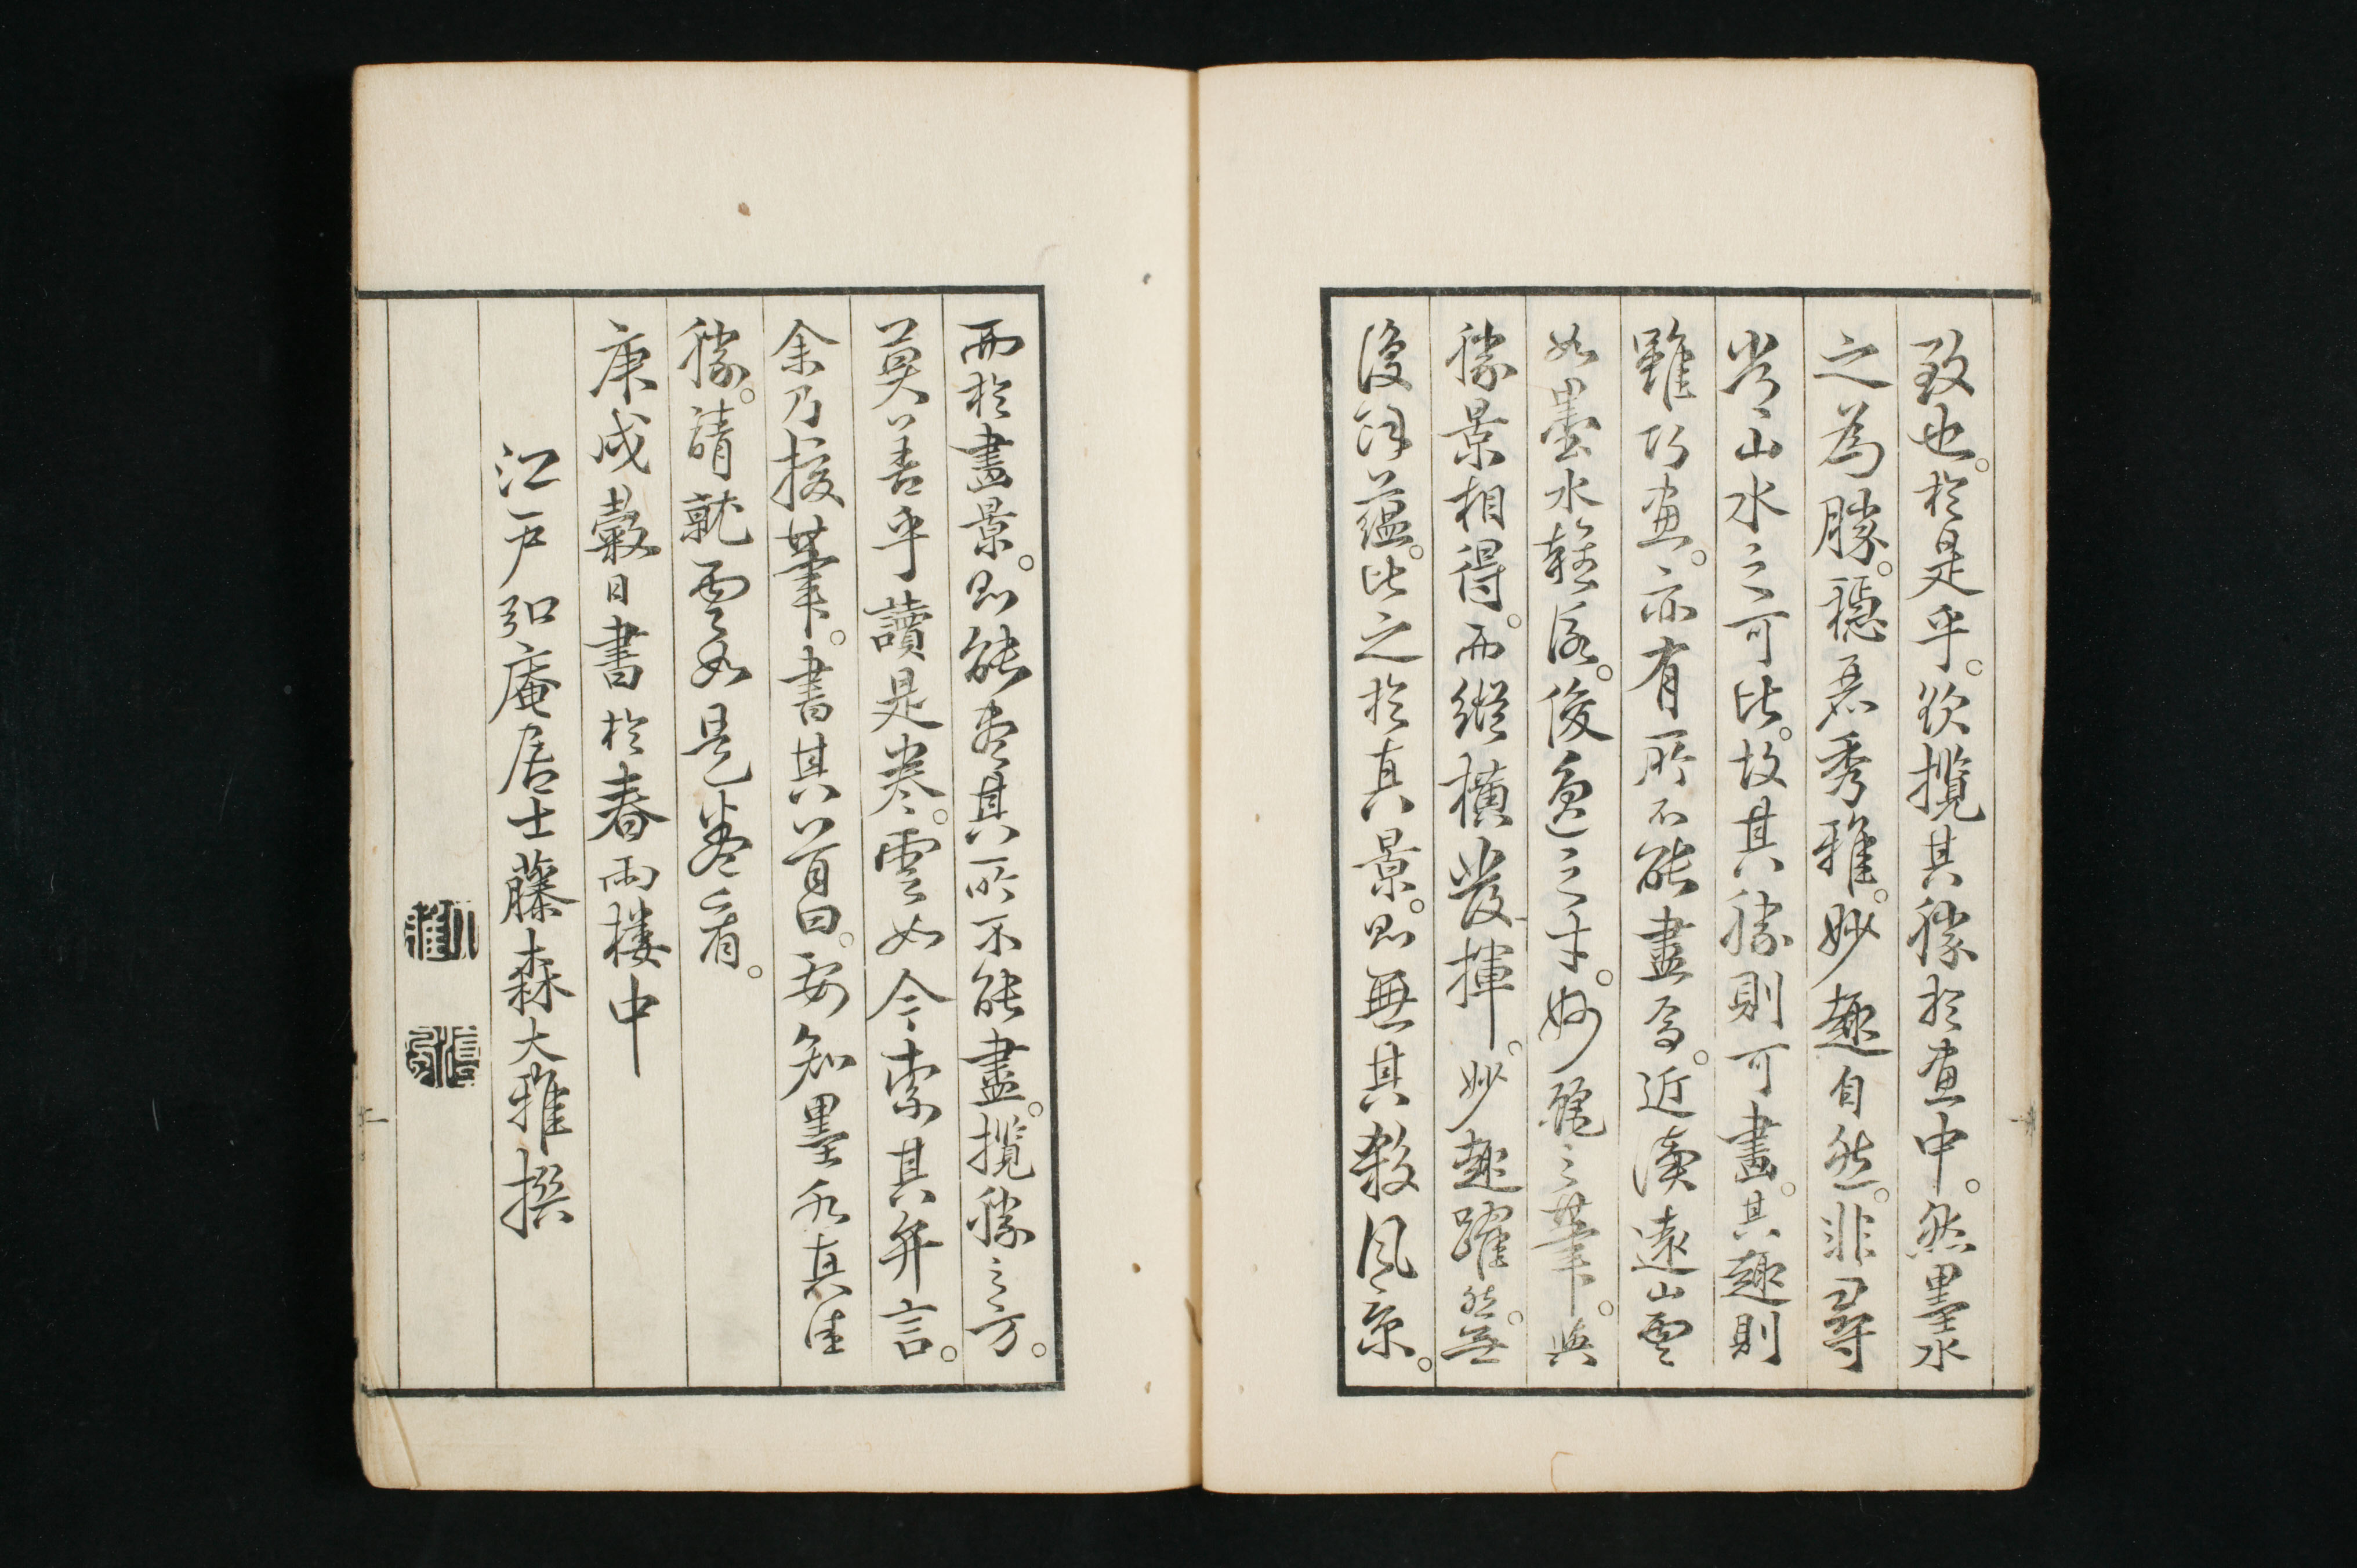 致也。於是乎。欲攬其勝於畫中。然墨水
之為勝。穩秀雅。妙趣自然。非尋
常山水之可比。故其勝則可畫。其趣則
雖巧畫。亦有所不能盡焉。近濱遠山雲
如墨水雜。俊逸之才。妙麗之筆。與
勝景相得。而縱橫發揮。妙趣躍然。無
復餘蘊。比之於真景。則無其殺風景。
而於畫景。則能尽其所不能盡。攬勝之方。
莫善乎讀是卷。雲如令索其弁言。
余乃援筆。書其首曰。要知墨水真佳
勝。請就雲如是卷看。
庚戌穀日書於春雨樓中
江戶弘庵居士藤森大雅撰
大雅